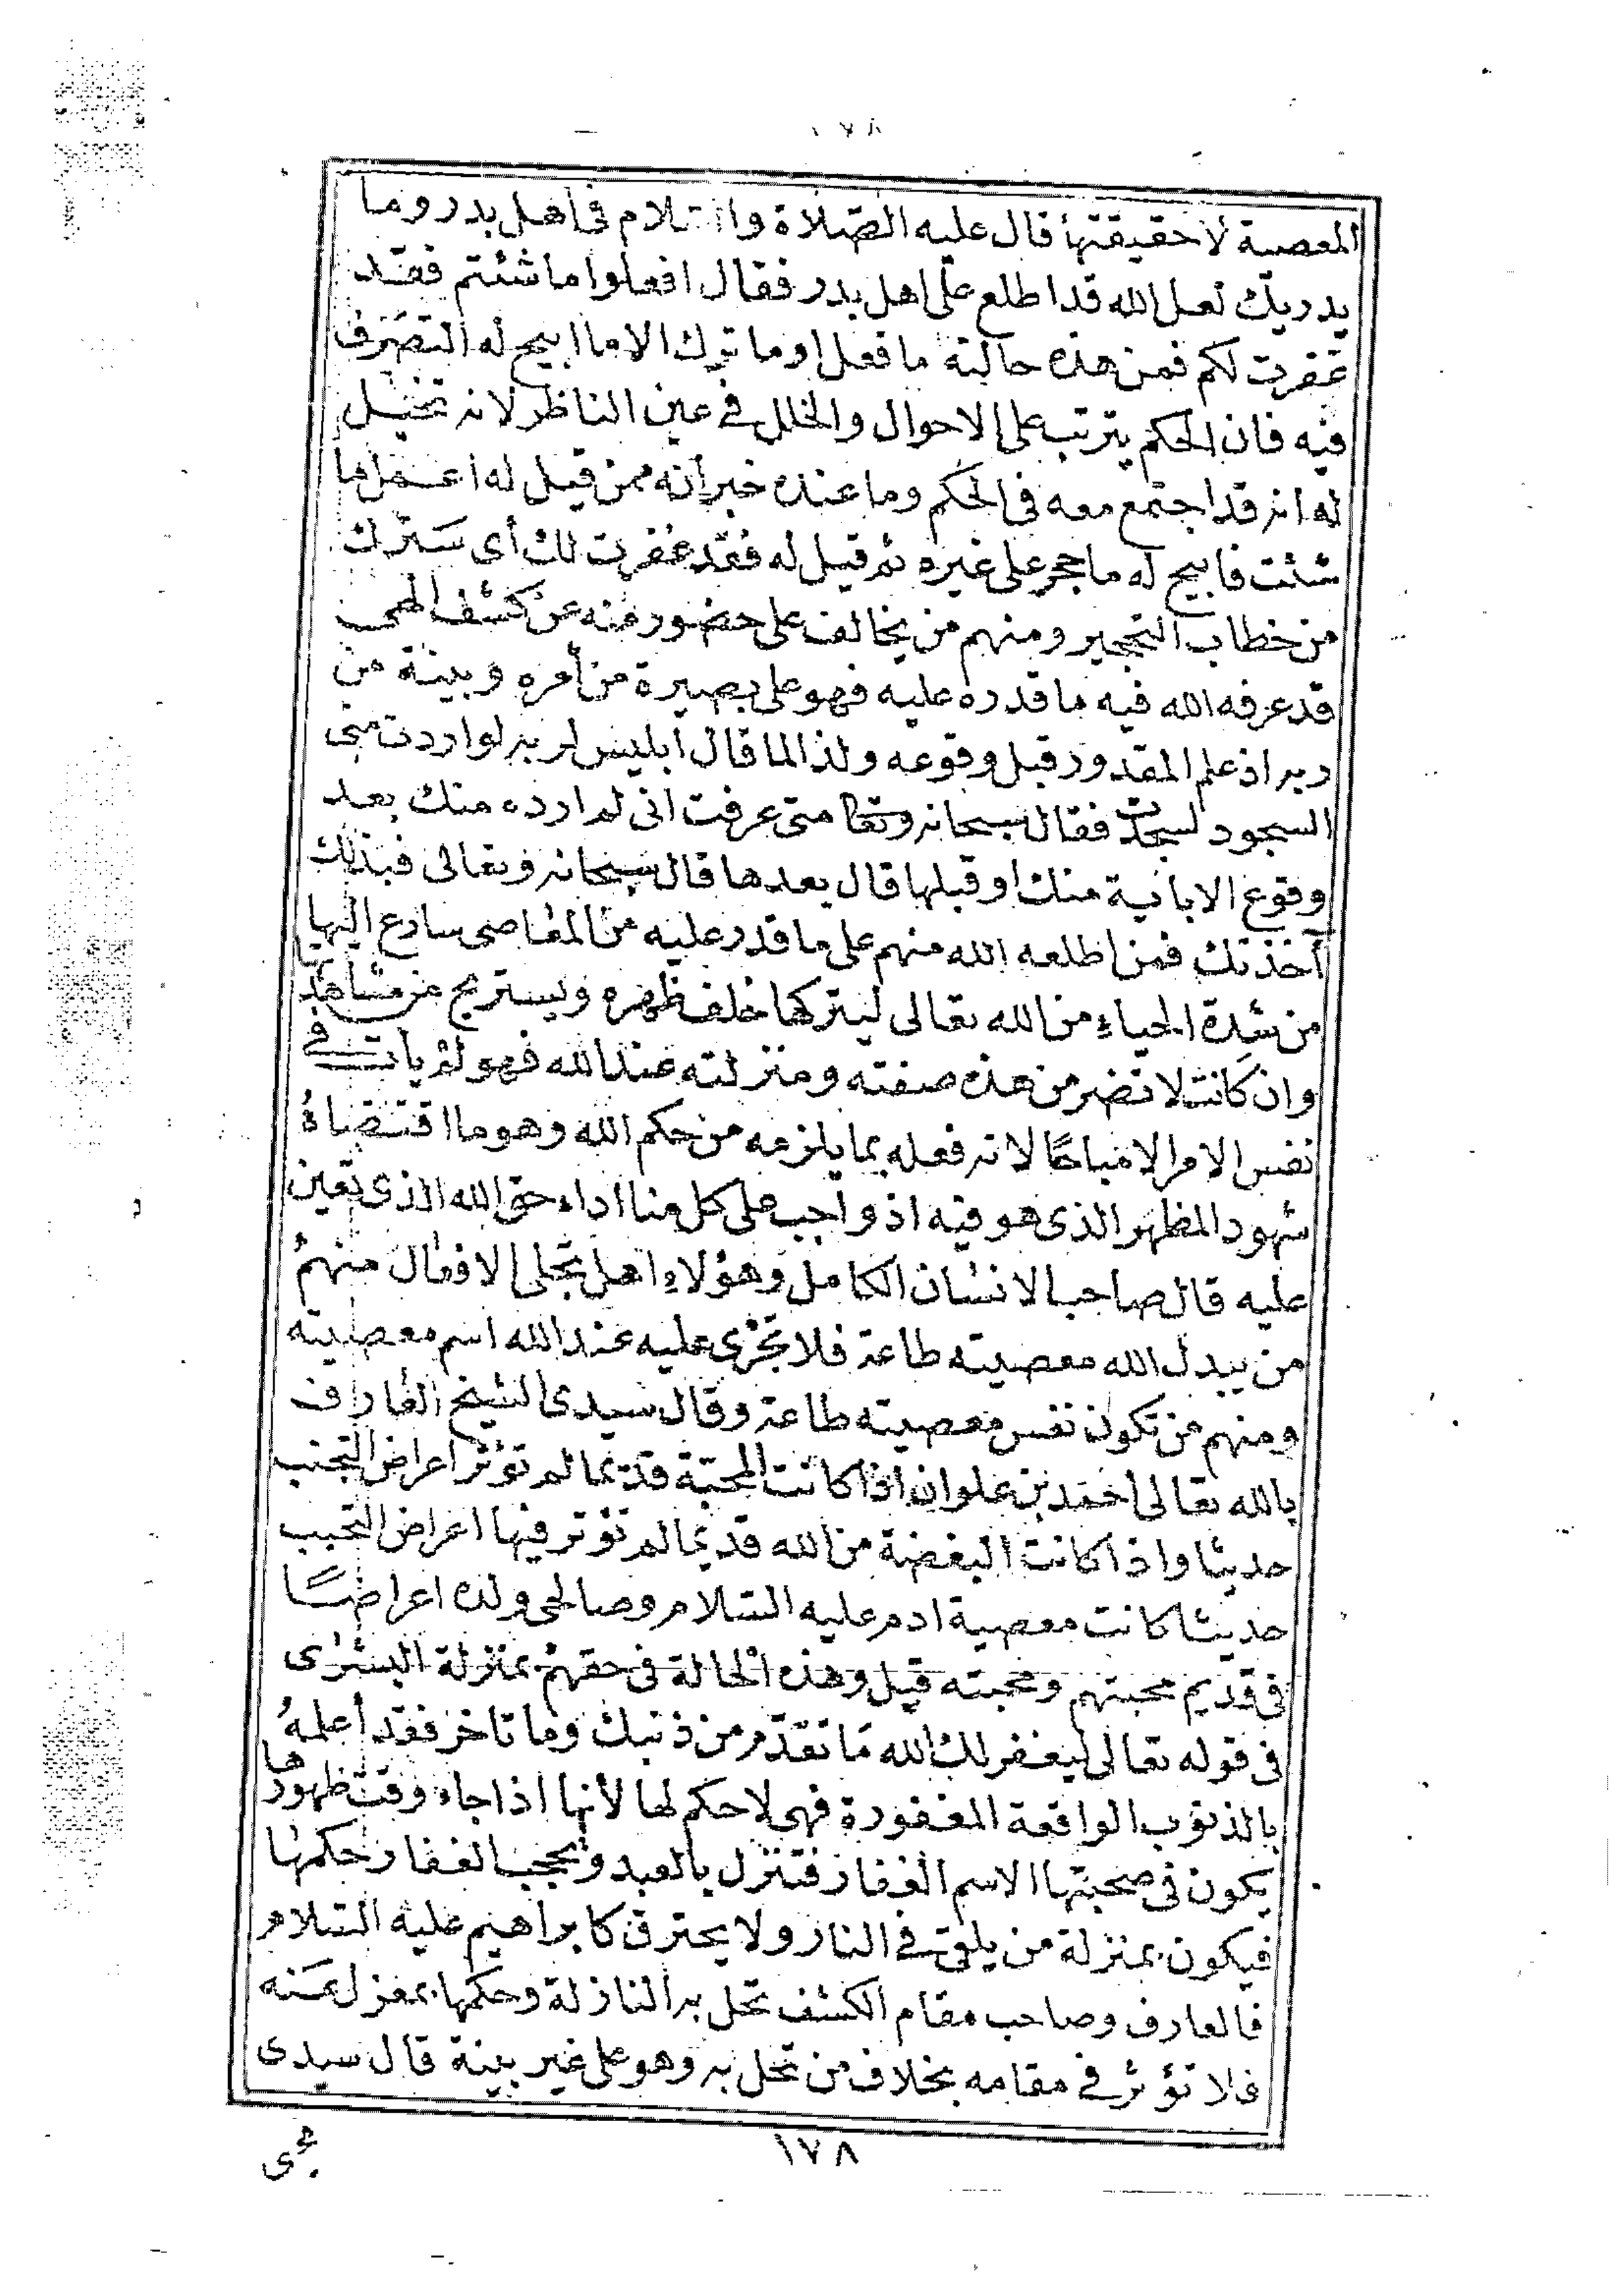 ١٧٨
المعصية لا حقيقتها قال عليه الصلاة والسلام في اهل بدر وما
يدريك لعل الله قد اطلع على اهل بدر فقال افعلوا ما شئتم فقد
غفرت لكم فمن هذه حالته ما فعل او ما ترك الا ما ابيح له التصرف
فيه فان الحكم يترتب على الاحوال والخلل في عين الناظر لانه تخيل
له انه قد اجتمع معه في الحكم وما عنده خبر انه ممن قيل له اعمل ما
شئت فابيح له ما حجر على غيره ثم قيل له فقد غفرت لك أي سترك
من خطاب التحجير ومنهم من يخالف على حضور منه عن كشف الهى
قد عرفه الله فيه ما قدره عليه فهو على بصيرة من أمره وبينة من
ربه اذ علم المقدور قبل وقوعه ولذا لما قال ابليس لربه لو اردت منى
السجود لسجدت فقال سبحانه وتعا متى عرفت انى لم ارده منك بعد
وقوع الاباية منك او قبلها قال بعدها قال سبحانه وتعالى فبذلك
أخذتك فمن اطلعه الله منهم على ما قدر عليه من المعاصى سارع اليها
من شدة الحياء من الله تعالى ليتركها خلف ظهره ويستريح من مشاهدتها
وان كانت لا تضر من هذه صفته ومنزلته عند الله فهو لم يأت في
نفس الامر الا مباحًا لانه فعله بما يلزمه من حكم الله وهو ما اقتضاهُ
شهود المظهر الذى هو فيه اذ واجب على كل منا اداء حق الله الذى تعين
عليه قال صاحب الانسان الكامل وهؤلاء اهل تجلى الافعال منهم
من يبدل الله معصيته طاعة فلا تجرى عليه عند الله اسم معصيته
ومنهم من تكون نفس معصيته طاعة وقال سيدى الشيخ العارف
بالله تعالى احمد بن علوان اذا كانت المحبّة قديما لم تؤثر اعراض التجنب
حديثا واذا كانت البغضة من الله قديما لم تؤثر فيها اعراض التحبب
حديثا كانت معصية ادم عليه السلام وصالحى ولده اعراضًا
فى قديم محبتهم ومحبته قيل وهذه الحالة فى حقهم بمنزلة البشرى
فى قوله تعالى ليغفر لك الله ما تقدّم من ذنبك وما تاخر فقد أعلمهُ
بالذنوب الواقعة المغفورة فهى لا حكم لها لأنها اذا جاء وقت ظهورها
يكون فى صحبتها الاسم الغفار فتنزل بالعبد ويحجب الغفار حكمها
فيكون بمنزلة من يلقى في النار ولا يحترق كابراهيم عليه السلام
فالعارف وصاحب مقام الكشف تحل به النازلة وحكمها بمعزل عنه
فلا تؤثر في مقامه بخلاف من تحل به وهو على غير بينة قال سيدى
١٧٨